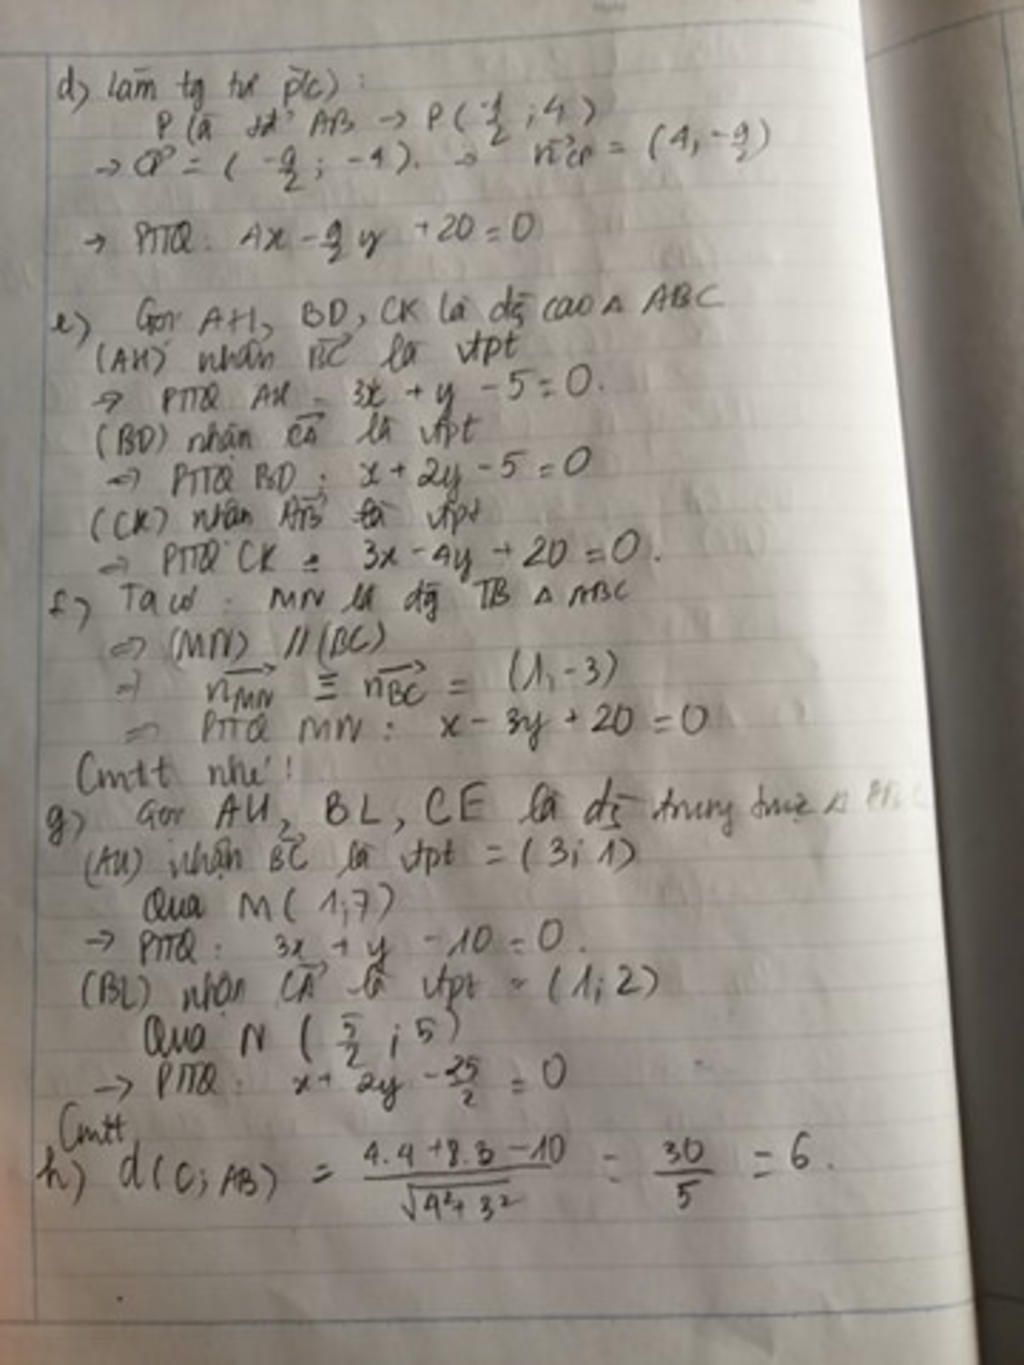 d) Làm tg tự p(c) :
P là tđ AB → P( 1/2 ; 4 )
→ CP = ( -9/2 ; -4 ). → n CP = (4, -9/2)
→ PTTQ : 4x - 9/2 y + 20 = 0
e) Gọi AH, BD, CK là đg cao Δ ABC
(AH) nhận BC là vtpt
=> PTTQ AH : 3x + y - 5 = 0.
(BD) nhận CA là vtpt
=> PTTQ BD : x + 2y - 5 = 0
(CK) nhận AB là vtpt
=> PTTQ CK : 3x - 4y + 20 = 0.
f) Ta có : MN là đg TB Δ ABC
=> (MN) // (BC)
=> n MN ≡ n BC = (1, -3)
=> PTTQ MN : x - 3y + 20 = 0
Cmtt nhé !
g) Gọi AU, BL, CE là đg trung trực Δ ABC
(AU) nhận BC là vtpt = (3; 1)
Qua M( 1; 7)
→ PTTQ : 3x + y - 10 = 0.
(BL) nhận CA là vtpt = (1; 2)
Qua N ( 5/2 ; 5)
→ PTTQ : x + 2y - 25/2 = 0
Cmtt
h) d(C; AB) = (4.4 + 8.3 - 10)/√(4² + 3²) = 30/5 = 6.